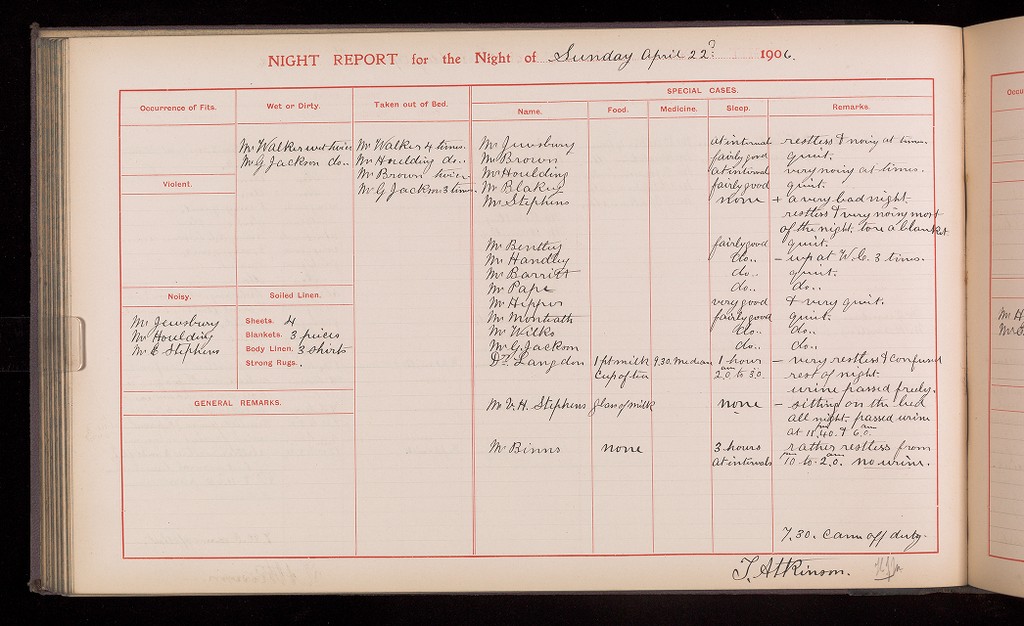 NIGHT REPORT for the Night of Sunday April 22nd 1906.
Occurrence of Fits.
Wet or Dirty.
Mr Walker wet twice
Mr G Jackson do..
Taken out of Bed.
Mr Walker 4 times.
Mr Houlding do..
Mr Brown twice
Mr G Jackson 3 times.
Violent.
Noisy.
Mr Jewsbury
Mr Houlding
Mr E Stephens
Soiled Linen.
Sheets. 4
Blankets. 3 pieces
Body Linen. 3 shirts
Strong Rugs. .
GENERAL REMARKS.
SPECIAL CASES.
Name. Food. Medicine. Sleep. Remarks.
Mr Jewsbury at interval restless & noisy at times.
Mr Brown fairly good quiet.
Mr Houlding at interval very noisy at times.
Mr Blakey fairly good quiet.
Mr Stephens none + a very bad night.
restless & very noisy most
of the night. tore a blanket.
Mr Bentley fairly good quiet.
Mr Handley do.. - up at W.C. 3 times.
Mr Barritt do.. quiet.
Mr Pape do.. do..
Mr Hipper very good & very quiet.
Mr Monteath fairly good quiet.
Mr Wilks do.. do..
Mr G Jackson do.. do..
Dr. Langdon 1 pt milk 9.30. Medicine 1 hour - very restless & confused
Cup of tea 2.0 am to 3.0. rest of night.
urine passed freely.
Mr V. H. Stephens glass of milk none - sitting on the bed
all night. passed urine
at 11.40. pm & 6.0. am
Mr Binns none 3 hours rather restless from
at intervals 10 pm to 2.0. am no urine.
7.30. Came off duty.
T. Atkinson.
Occu
Mr H
Mr